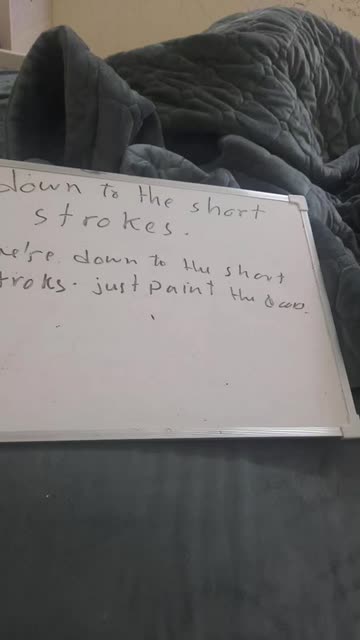 down to the short
strokes.
we're down to the short
troks. just paint the door.